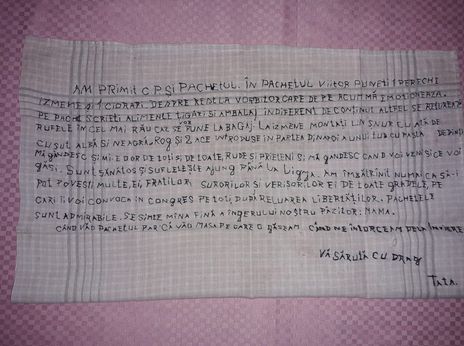 AM PRIMIT C.P. ȘI PACHETUL. ÎN PACHETUL VIITOR PUNEȚI 1 PERECHI
IZMENE ȘI 1 CIORAPI. DESPRE VORBITOR CARE DE PE ACUM MĂ EMOȚIONEAZĂ.
PE PACHET SCRIEȚI ALIMENTE ȚIGĂRI ȘI AMBALAJ INDIFERENT DE CONȚINUT ALTFEL SE
RUFELE ÎN CEL MAI RĂU CAZ SE VOR PUNE LA BAGAJ. LA IZMENE MONTAȚI UN ȘNUR CU AȚĂ DE
CUSUT ALBĂ ȘI NEAGRĂ. ROG ȘI 2 ACE INTRODUSE ÎN PARTEA DINAPOI A UNUI TUB CU PASTĂ DE DINȚI
MĂ GÂNDESC ȘI MI-E DOR DE TOȚI, DE TOATE, RUDE ȘI PRIETENI ȘI MĂ GÂNDESC CÂND VOI VENI ȘI CE VOI
GĂSI. SUNT SĂNĂTOS ȘI SUFLETEȘTE AJUNG PÂNĂ LA AM ÎMBĂTRÎNIT NUMAI CA SĂ-I
POT POVESTI MULTE, EI, FRAȚILOR SURORILOR ȘI VERIȘORILOR EI DE TOATE GRADELE, PE
CARI ÎI VOI CONVOCA ÎN CONGRES PE TOȚI, DUPĂ RELUAREA LIBERTĂȚILOR. PACHETELE
SUNT ADMIRABILE. SE SIMTE MÎNA FINĂ A ÎNGERULUI NOSTRU PĂZITOR: MAMA.
CÂND VĂD PACHETUL PARCĂ VĂD MASA PE CARE O GĂSEAM CÂND MĂ ÎNTORCEAM DE LA
VĂ SĂRUTĂ CU DRAG
TATA.